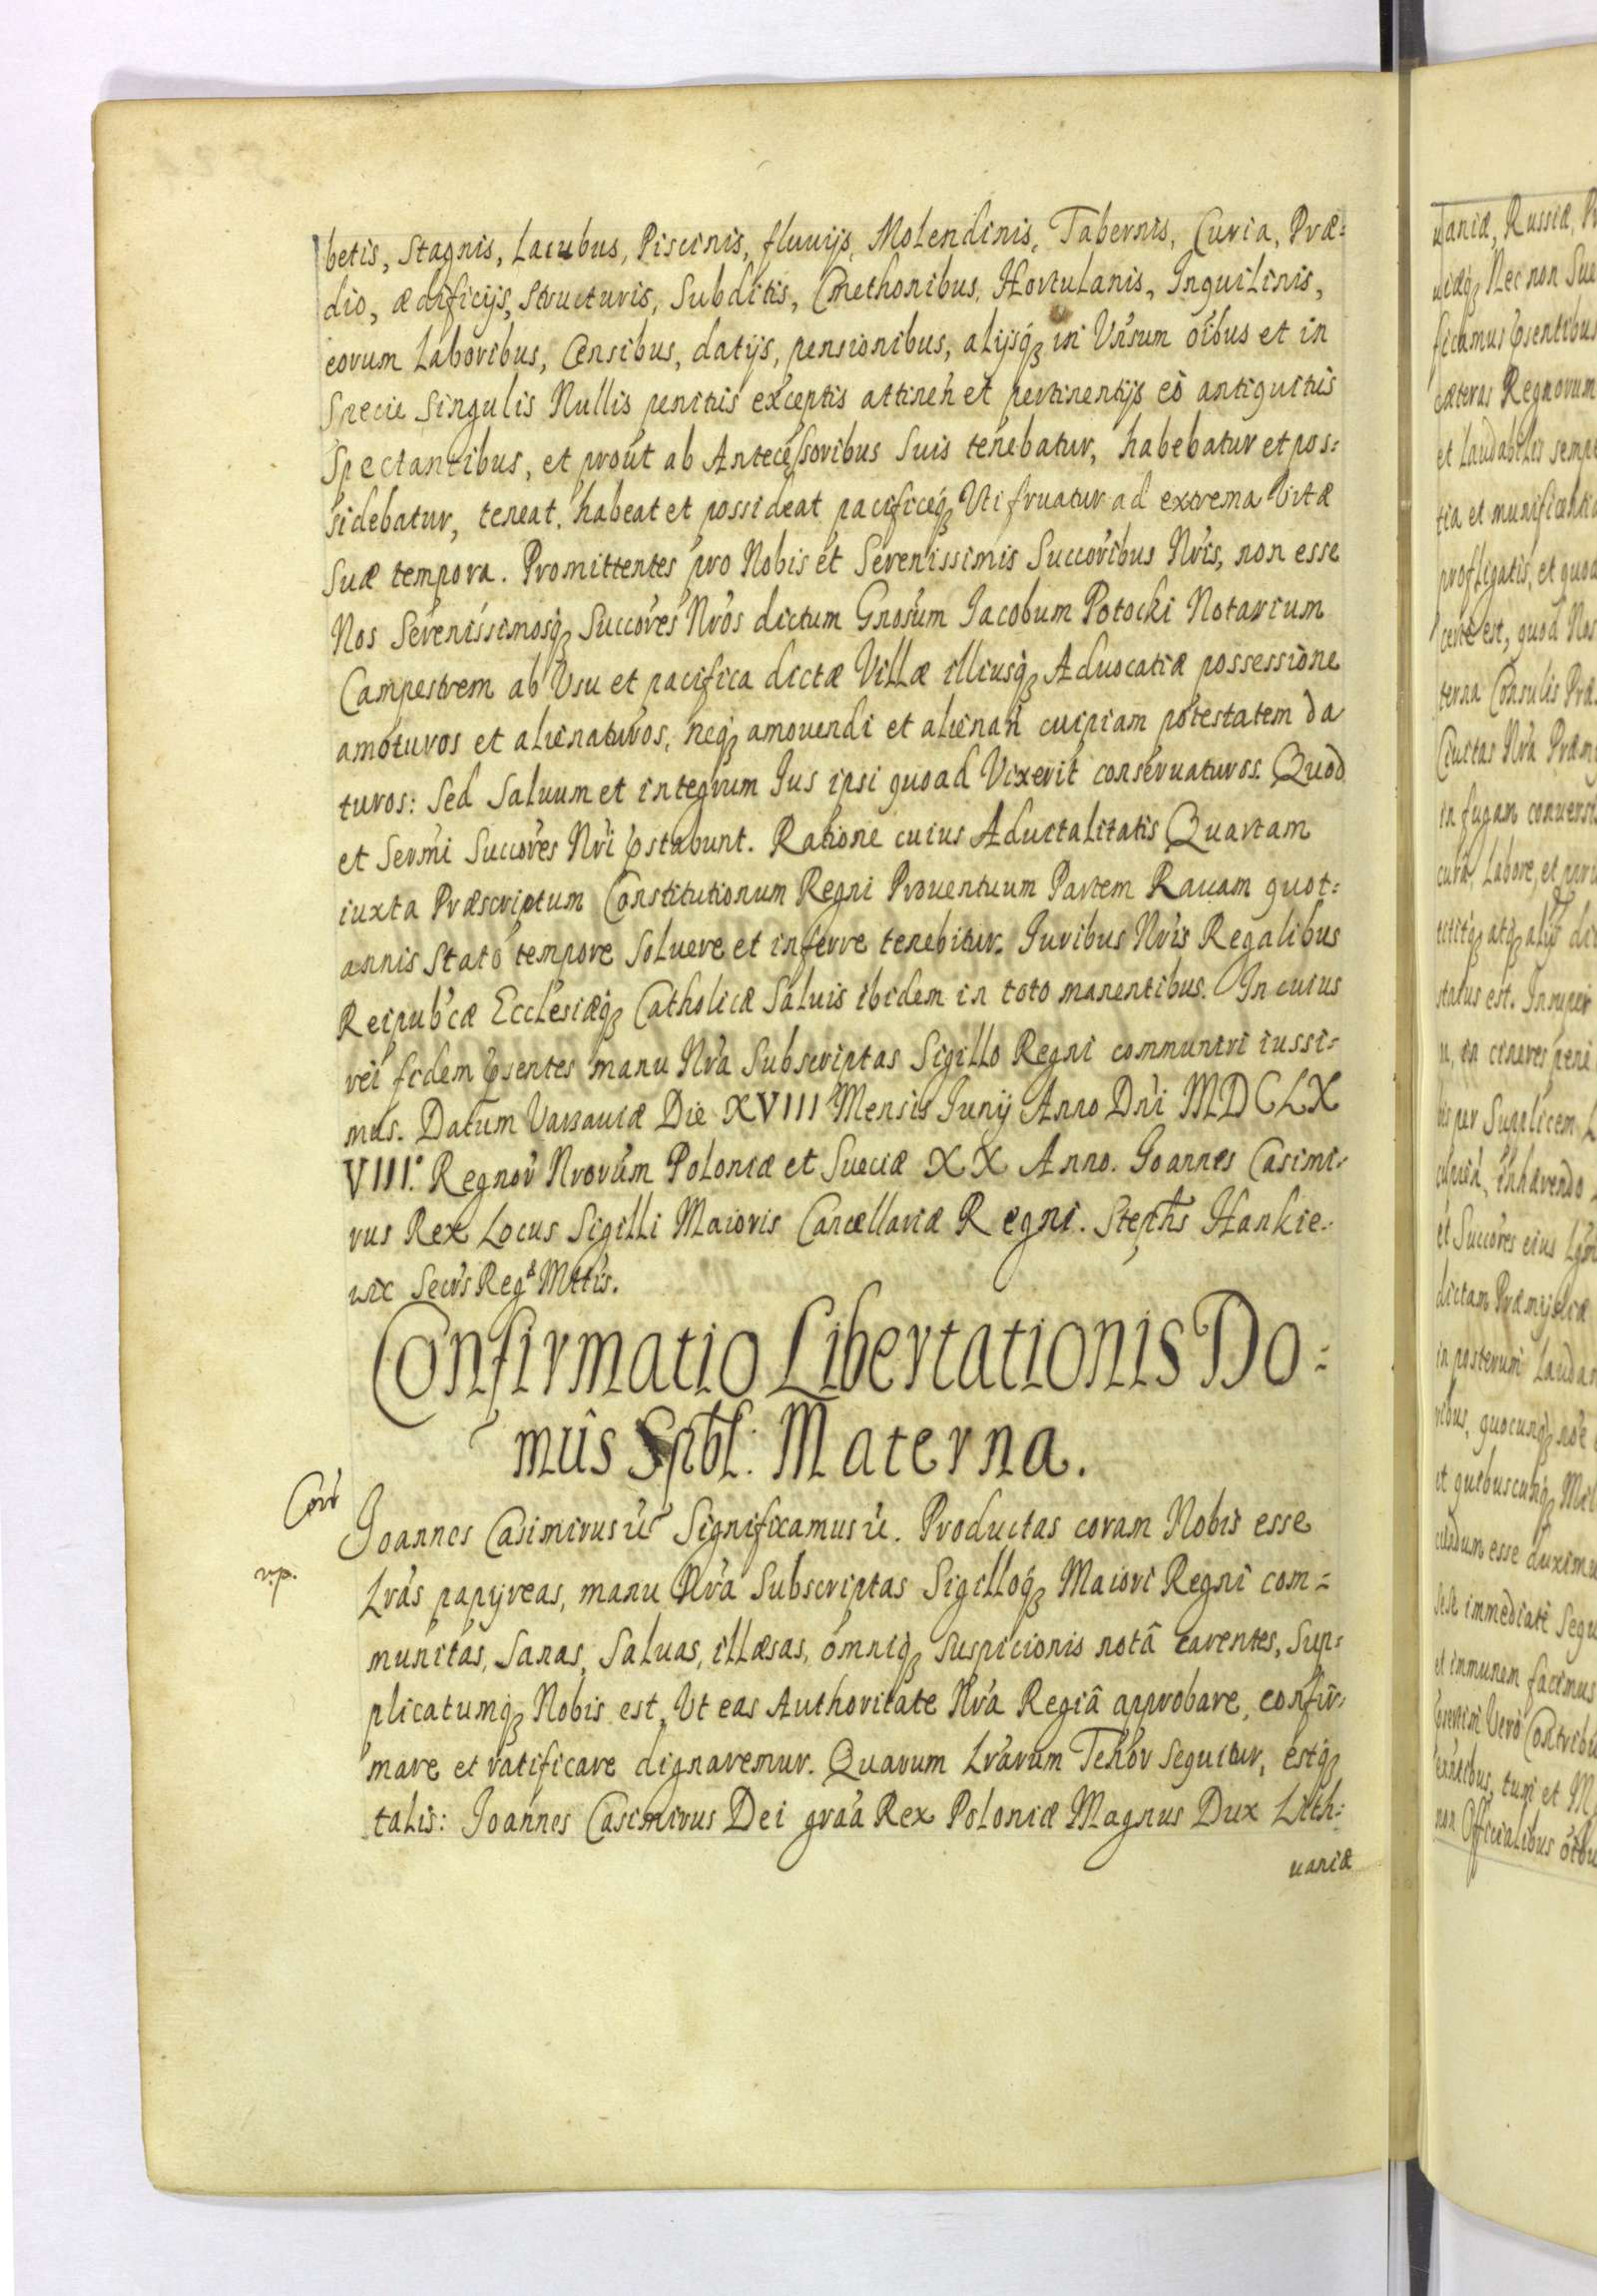 betis, Stagnis, Lacubus, Piscinis, fluuijs, Molendinis, Tabernis, Curia, Præ=
dio, ædificijs, Structuris, Subditis, Cmethonibus, Hortulanis, Inquilinis,
eorum Laboribus, Censibus, datijs, pensionibus, alijsq3 in Vn̄sum oībus et in
Specie Singulis Nullis penitus exceptis attinen̄ et pertinentijs eò antiquitus
Spectantibus, et prout ab Antecessoribus Suis tenebatur, habebatur et pos=
sidebatur, teneat, habeat et possideat pacificeq3 Uti fruatur ad extrema Vitæ
Suæ tempora. Promittentes pro Nobis et Serenissimis Succoribus Nris, non esse
Nos Serenissimosq3 Succores Nros dictum Gnosum Jacobum Potocki Notarium
Campestrem ab Vsu et pacifica dictæ Villæ illiusq3 Aduocatiæ possessione
amoturos et alienaturos, neq3 amouendi et alienan̄ cuipiam potestatem da
turos: Sed Saluum et integrum Jus ipsi quoad Vixerit conseruaturos. Quod
et Sermi Succores Nri pstabunt. Ratione cuius Aduitalitatis Quartam
iuxta Præscriptum Constitutionum Regni Prouentuum Partem Rauam quot=
annis Stato tempore Soluere et inferre tenebitur. Juribus Nris Regalibus
Reipubcæ Ecclesiæq3 Catholicæ Saluis ibidem in toto manentibus. In cuius
rei fidem psentes manu Nra Subscriptas Sigillo Regni communiri iussi=
mus. Datum Varsauiæ Die XVIII Mensis Junij Anno Dni MDCLX
VIII. Regnor̄ Nrorum Poloniæ et Sueciæ XX Anno. Joannes Casimi=
rus Rex Locus Sigilli Maioris Cancellariæ Regni. Stephs Hankie=
wic Secrs Reg. Mttis.
Confirmatio Libertationis Do=
mûs Spbl: Materna.
Corr
Joannes Casimirus etc Significamus etc. Productas coram Nobis esse
r.p.
Lras papyreas, manu Nra Subscriptas Sigilloq3 Maiori Regni com=
munitas, Sanas, Saluas, illæsas, omniq3 suspicionis notâ carentes, Sup=
plicatumq3 Nobis est, Vt eas Authoritate Nra Regiâ approbare, confir=
mare et ratificare dignaremur. Quarum Lrarum Tenor sequitur, estq3
talis: Joannes Casimirus Dei graa Rex Poloniæ Magnus Dux Lith=
uaniæ
uaniæ, Russiæ,
Nec non
ficamus psentibus
cæteras Regnorum
et Laudabiles
tia et munificentia
profligatis, et
certe est, quod Nos
terna Consulis
Ciuitas Nra
in fugam
cura, Labore, et
status est. Insuper
in cineres
per Supplicem
inhærendo
et Succores eius
dictam Præmisliæ
in posterum
quocunq3
et quibuscunq3
esse duximus
immediate
et immunem facimus
Vero
tum et
non Officialibus